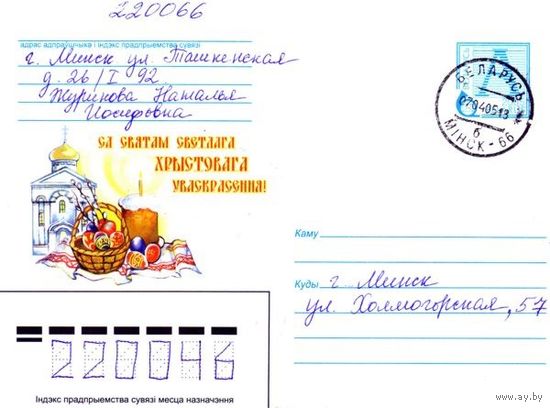 220066
адрас адпраўшчыка і індэкс прадпрыемства сувязі
г. Минск ул. Ташкенская
д. 26/I 92
Журикова Наталья
Иосифовна
СА СВЯТАМ СВЕТЛАГА
ХРЫСТОВАГА
УВАСКРАСЕННЯ!
А
БЕЛАРУСЬ
МІНСК-66
б
Каму
Куды г. Минск
ул. Холмогорская, 57
220046
Індэкс прадпрыемства сувязі месца назначэння
www.ay.by